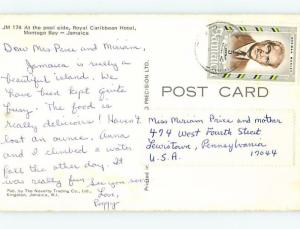 JM 174 At the pool side, Royal Caribbean Hotel,
Montego Bay — Jamaica
Dear Mrs Price and Miriam,
Jamaica is really a
beautiful island. We
have been kept quite
busy. The food is
really delicious! Haven't
lost an ounce. Anna
and I climbed a water
fall the other day. It
was really fun
See you soon
Love,
Poppy
Pub. by The Novelty Trading Co., Ltd.
Kingston, Jamaica, W.I.
PRECISION LTD.
POST CARD
Miss Miriam Price and mother
474 West Fourth Street
Lewistown, Pennsylvania
17044
U.S.A.